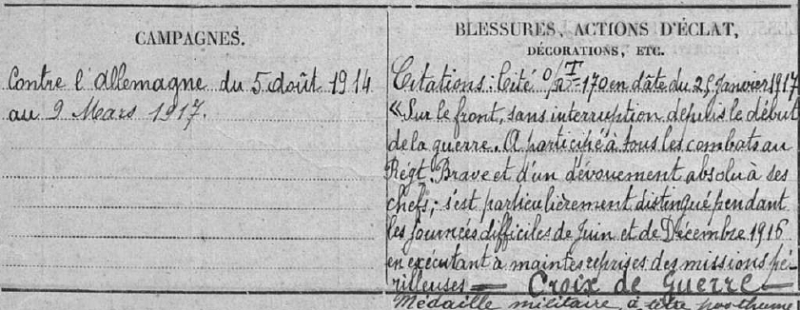 CAMPAGNES.
Contre l'Allemagne du 5 Août 1914
au 9 Mars 1917.
BLESSURES, ACTIONS D'ÉCLAT,
DÉCORATIONS, ETC.
Citations: Cité 170 en dâte du 25 Janvier 1917
«Sur le front, sans interruption depuis le début
de la guerre. A participé à tous les combats au
Régt. Brave et d'un dévouement absolu à ses
chefs; s'est particulièrement distingué pendant
les journées difficiles de Juin et de Décembre 1916
en exécutant à maintes reprises des missions pé-
rilleuses — Croix de Guerre —
Médaille militaire à titre posthume